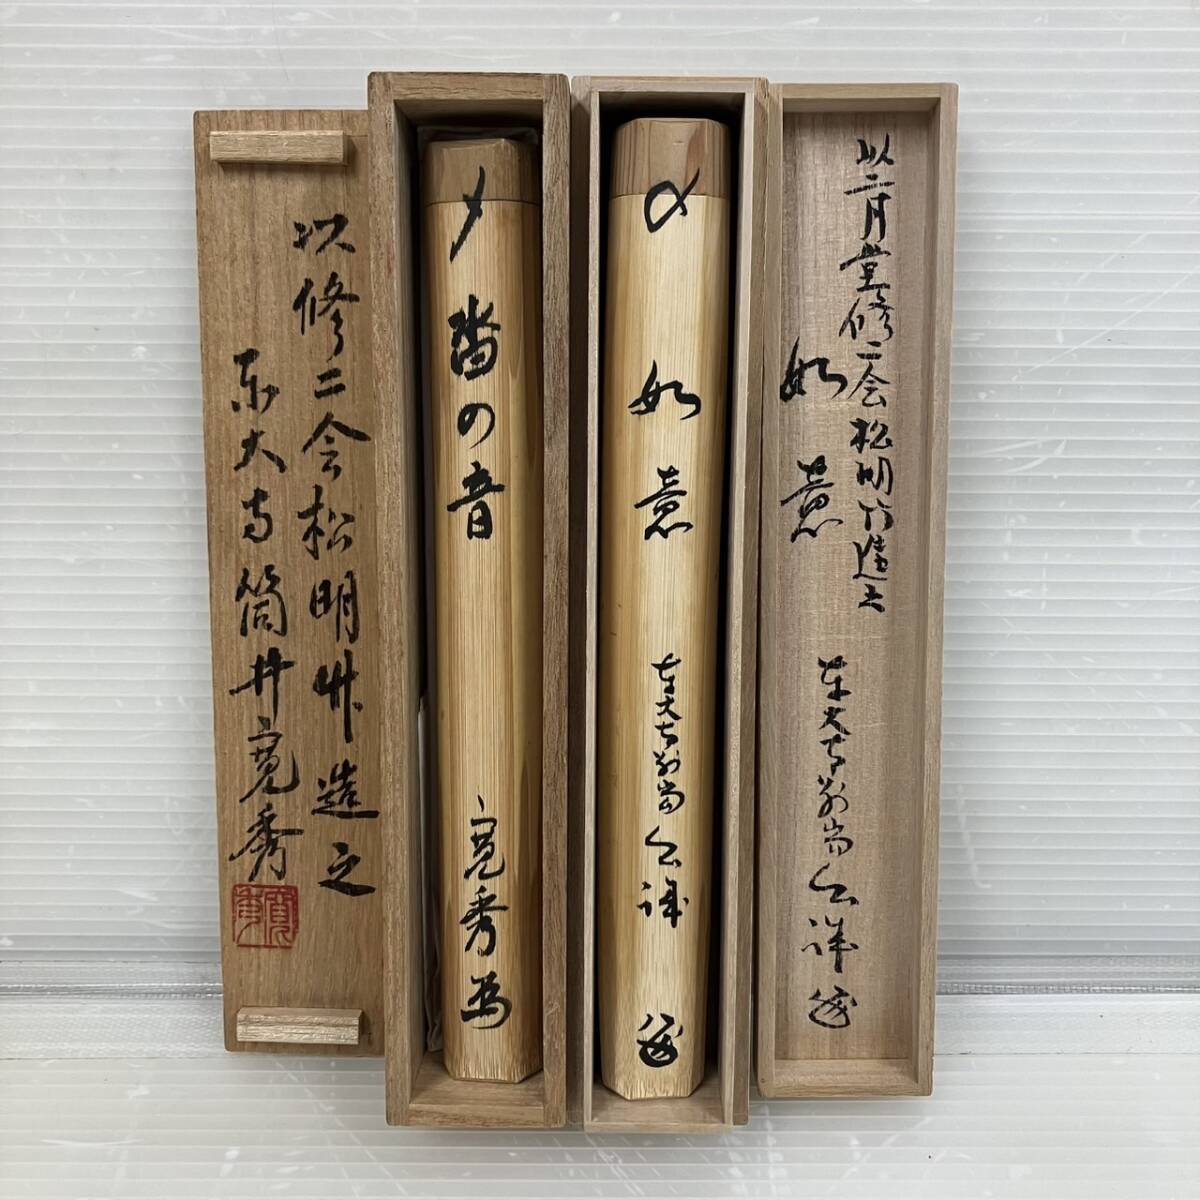 以二月堂修二会松明竹造之
如意
東大寺別当公誠
〆 如意 東大寺別当公誠
〆 沓の音 寛秀
以修二会松明竹造之
東大寺筒井寛秀